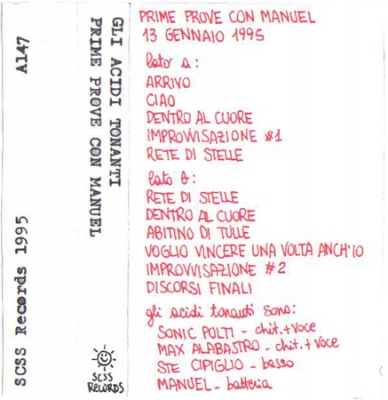 A147
SCSS Records 1995
GLI ACIDI TONANTI
PRIME PROVE CON MANUEL
SCSS
RECORDS
PRIME PROVE CON MANUEL
13 GENNAIO 1995
lato a:
ARRIVO
CIAO
DENTRO AL CUORE
IMPROVVISAZIONE #1
RETE DI STELLE
lato b:
RETE DI STELLE
DENTRO AL CUORE
ABITINO DI TULLE
VOGLIO VINCERE UNA VOLTA ANCH'IO
IMPROVVISAZIONE #2
DISCORSI FINALI
gli acidi tonanti sono:
SONIC POLTI - chit.+voce
MAX ALABASTRO - chit.+voce
STE CIPIGLIO - basso
MANUEL - batteria